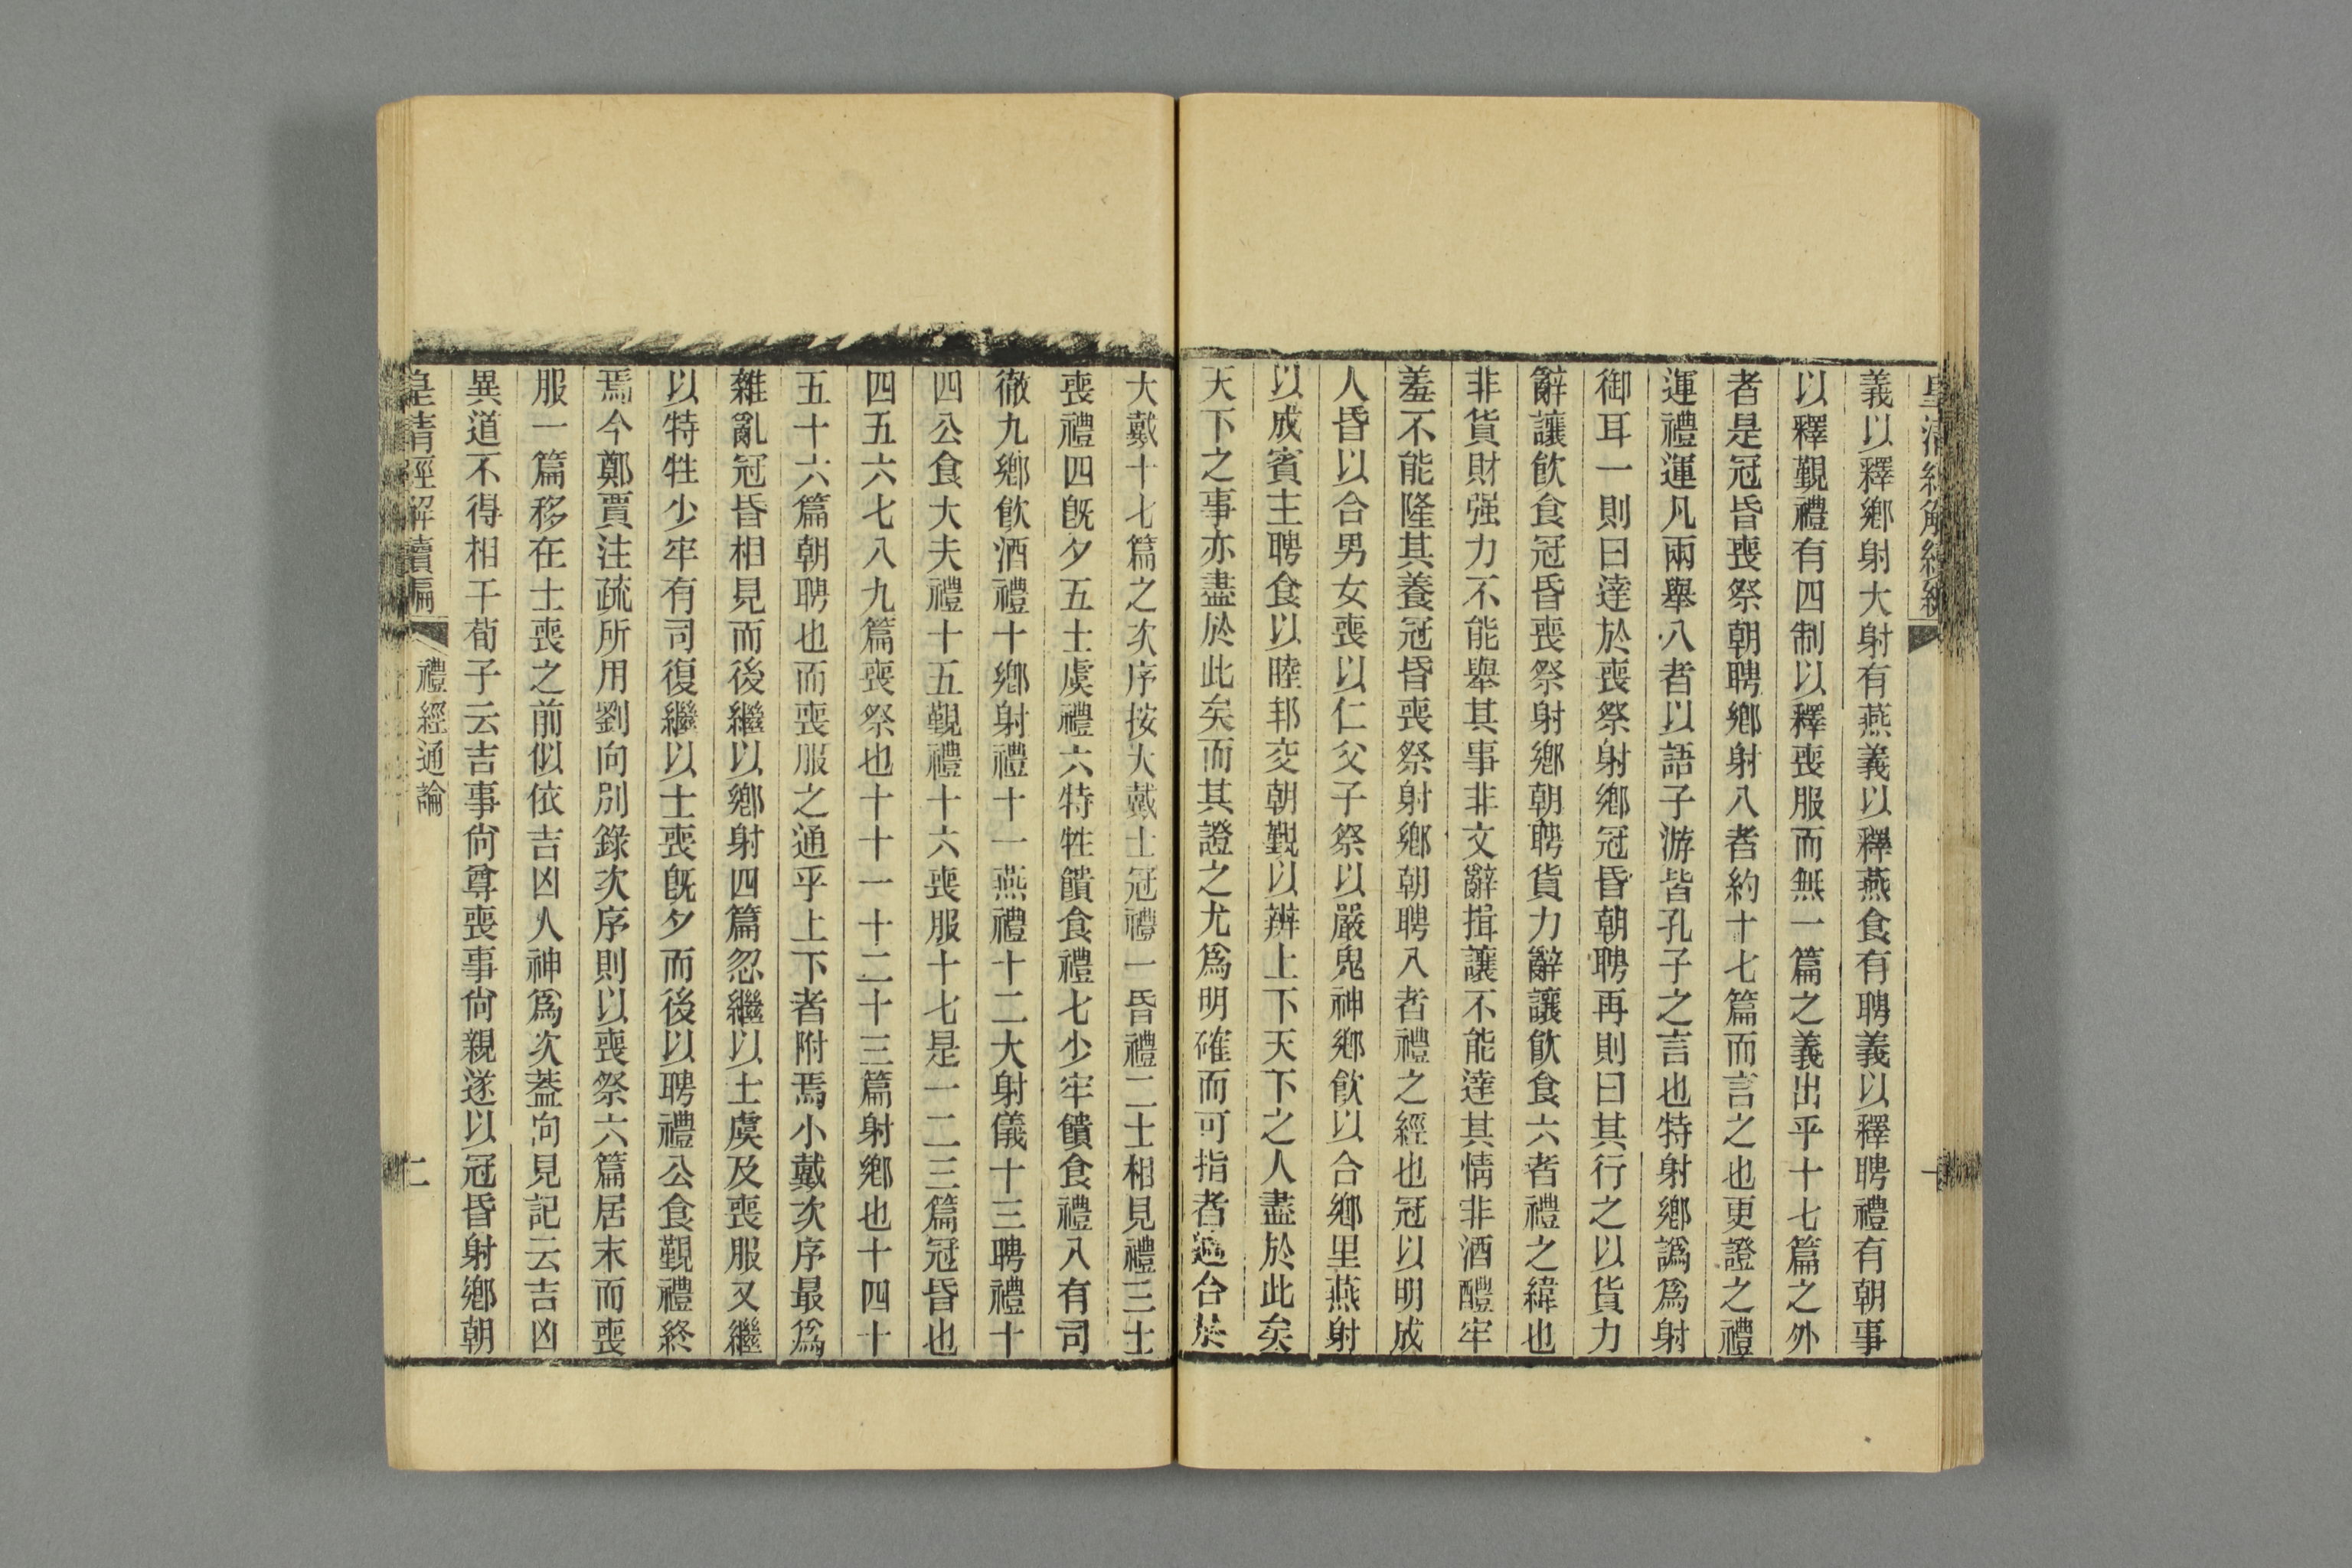 皇清經解續編
義以釋鄉射大射有燕義以釋燕食有聘義以釋聘禮有朝事
以釋覲禮有四制以釋喪服而無一篇之義出乎十七篇之外
者是冠昏喪祭朝聘鄉射八者約十七篇而言之也更證之禮
運禮運凡兩舉八者以語子游皆孔子之言也特射鄉譌爲射
御耳一則曰達於喪祭射鄉冠昏朝聘再則曰其行之以貨力
辭讓飮食冠昏喪祭射鄉朝聘貨力辭讓飮食六者禮之緯也
非貨財强力不能舉其事非文辭揖讓不能達其情非酒醴牢
羞不能隆其養冠昏喪祭射鄉朝聘八者禮之經也冠以明成
人昏以合男女喪以仁父子祭以嚴鬼神鄉飮以合鄉里燕射
以成賓主聘食以睦邦交朝覲以辨上下天下之人盡於此矣
天下之事亦盡於此矣而其證之尤爲明確而可指者適合於
大戴十七篇之次序按大戴士冠禮一昏禮二士相見禮三士
喪禮四旣夕五士虞禮六特牲饋食禮七少牢饋食禮八有司
徹九鄉飮酒禮十鄉射禮十一燕禮十二大射儀十三聘禮十
四公食大夫禮十五覲禮十六喪服十七是一二三篇冠昏也
四五六七八九篇喪祭也十十一十二十三篇射鄉也十四十
五十六篇朝聘也而喪服之通乎上下者附焉小戴次序最爲
雜亂冠昏相見而後繼以鄉射四篇忽繼以士虞及喪服又繼
以特牲少牢有司復繼以士喪旣夕而後以聘禮公食覲禮終
焉今鄭賈注疏所用劉向別錄次序則以喪祭六篇居末而喪
服一篇移在士喪之前似依吉凶人神爲次蓋向見記云吉凶
異道不得相干荀子云吉事尙尊喪事尙親遂以冠昏射鄉朝
皇清經解續編 禮經通論 二